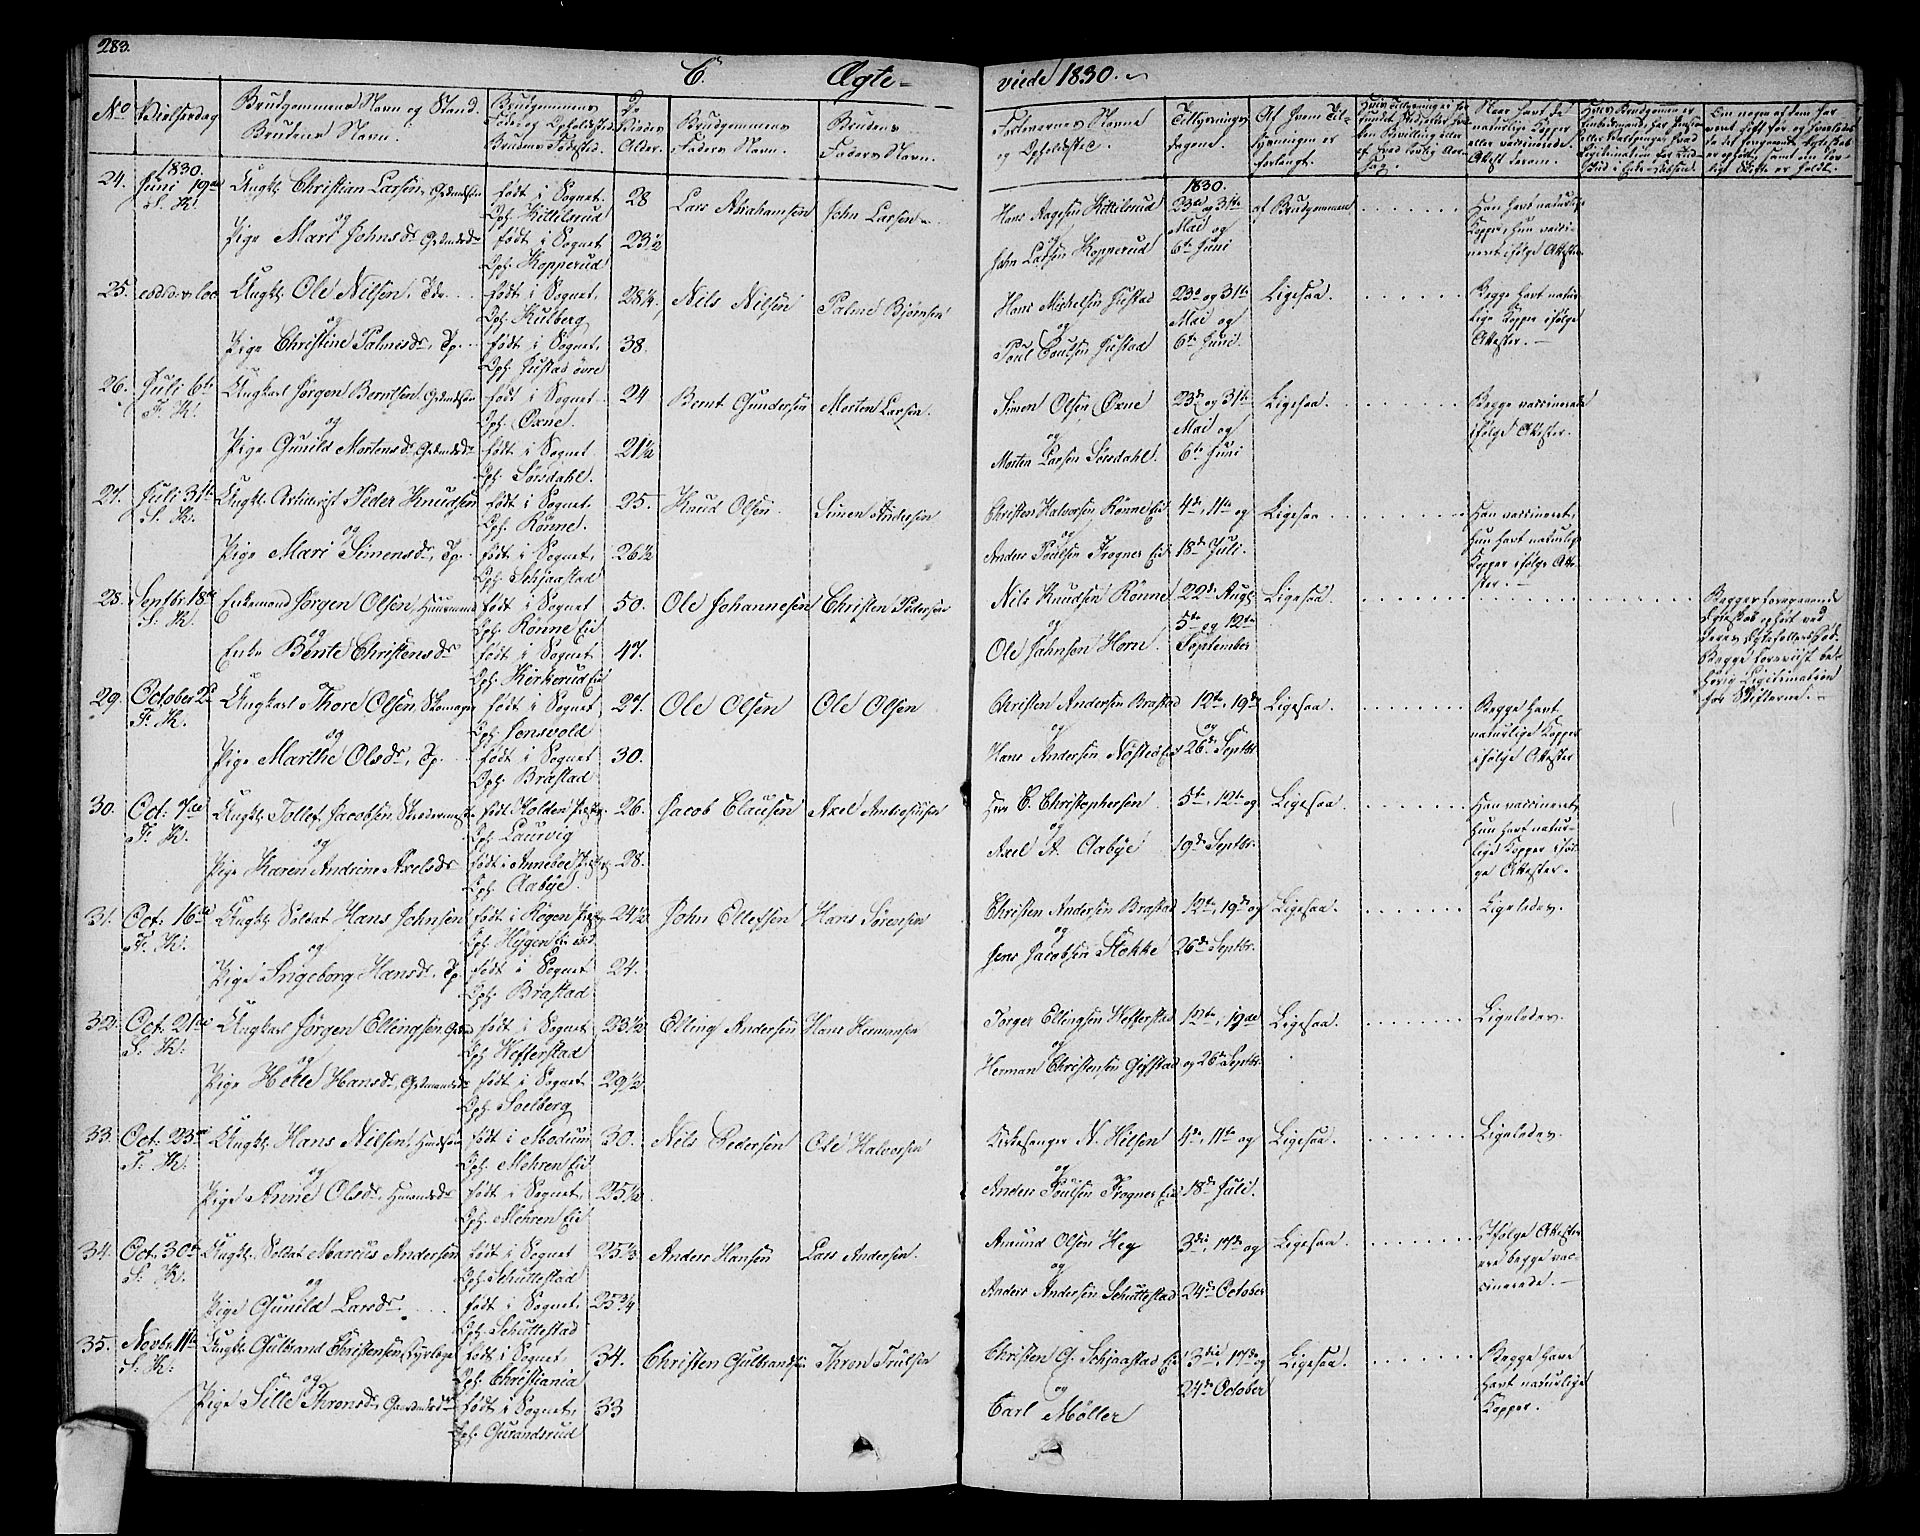 283.
C. Ægte-
viede 1830.
No
Vielsesdag
Brudgommens Navn og Stand.
Brudens Navn.
Brudgommens
Føde og Opholdssted
Brudens Fødested.
De
Viedes
Alder.
Brudgommens
Faders Navn.
Brudens
Faders Navn.
Forlovernes Navne
og Opholdsted.
Tillysnings
Dagene.
Af hvem Til-
lysningen er
forlangt.
Naar havt de
naturlige Kopper
eller vaccinerede.
Attest derom.
24.
1830.
Juni 19de
S. K.
Ungkl. Christian Larsen, Grdmdsøn
og
Pige Mari Johnsdr Grdmdsdr
født i Sognet
Oph. Kittilsrud
født i Sognet
Oph. Kopperud
28
23½
Lars Abrahamsen
John Larsen
Hans Aagesen Kittilsrud
og
John Larsen Kopperud
1830.
23de og 31te
Mai og
6te Juni
af Brudgommen
Han havt naturlige
Kopper, Hun vacci-
neret ifølge Attester
25.
eod: die & loc
Ungkl. Ole Nilsen, Tdr.
og
Pige Christine Palmesdr, Tp.
født i Sognet.
Oph. Kulberg
født i Sognet.
Oph. Justad øvre
28¼
38.
Nils Nilsen
Palme Bjørnsen
Hans Michelsen Justad
og
Poul Poulsen Justad
23de og 31te
Mai og
6te Juni.
Ligesaa.
Begge havt natur-
lige Kopper ifølge
Attester.
26.
Juli 6te
F. K.
Ungkarl Jørgen Berntsen Grdmdsøn
og
Pige Gunild Mortensdr Grdmdsdr
født i Sognet
Oph. Øxne.
født i Sognet
Oph. Sørsdahl.
24
21½
Bernt Gundersen
Morten Larsen.
Simen Olsen Øxne
og
Morten Larsen Sørsdahl.
23de og 31te
Mai og
6te Juni
Ligesaa.
Begge vaccinerede
ifølge Attester.
27.
Juli 31te
S. K.
Ungkl. Artillerist Peder Knudsen
og
Pige Mari Simensdr, Tp.
født i Sognet
Oph. Rønne.
født i Sognet,
Oph. Schjaastad
25.
26½
Knud Olsen
Simen Andersen
Christen Halvorsen Rønne Eie
og
Anders Poulsen Frogner Eie
4de, 11te og
18de Juli.
Ligesaa.
Han vaccineret,
Hun havt naturlige
Kopper ifølge Atte-
ster.
28.
Septbr. 18de
S. K.
Enkemand Jørgen Olsen Huusmand
og
Enke Bente Christensdr
født i Sognet
Oph. Rønne Eie
født i Sognet
Oph. Kirkerud Eie
50.
47.
Ole Johannesen
Christen Pedersen
Nils Knudsen Rønne
og
Ole Johnsen Horn.
22de Augt.
5te og 12te
September
Ligesaa.
Begges foregaaende
Egteskab ophørt ved
deres Egtefellers Død.
Begge foreviist be-
hørig Legitimation
for Skifterne.
29.
October 2de
F. K.
Ungkarl Thore Olsen, Skomager
og
Pige Marthe Olsdr, Tp.
født i Sognet
Oph. Jensvold
født i Sognet
Oph. Brastad
27.
30.
Ole Olsen
Ole Olsen
Christen Andersen Brastad
og
Hans Andersen Nøsted Eie
12te, 19de
og
26de Septbr.
Ligesaa.
Begge havt
naturlige Kopper
ifølge Attester
30.
Oct: 7de
F. K.
Ungkl. Tollef Jacobsen Skræddermester
og
Pige Karen Andrine Axelsdr
født Holden Præstgj.
Oph. Laurvig
født i Anneboe Præstgj.
Oph. Aabye.
26.
28.
Jacob Clausen
Axel Ambrosiusen
Hr. C. Christophersen
og
Axel A. Aabye
5te, 12te og
19de Septbr.
Ligesaa.
Han vaccineret,
Hun havt natur-
lige Kopper iføl-
ge Attester.
31.
Oct: 16de
F. K.
Ungkl. Soldat Hans Johnsen
og
Pige Ingeborg Hansdr. Tp.
født i Røgen Præstgj.
født i Sognet
Oph. Brastad
24½
24.
John Ellefsen
Hans Sørensen
Christen Andersen Brastad
og
Jens Jacobsen Stokke
12te, 19de og
26de Septbr.
Ligesaa.
Ligeledes.
32.
Oct: 21de
S. K.
Ungkarl Jørgen Ellingsen, Grdm
og
Pige Helle Hansdr, Grdmandsdr
født i Sognet
Oph. Wefferstad
født i Sognet.
Oph. Soelberg
23½
29½
Elling Andersen
Hans Hermansen
Torger Ellingsen Wefferstad
og
Herman Christensen Gifstad
12te, 19de
og 26de Septbr.
Ligesaa.
Ligeledes.
33.
Oct: 23de
F. K.
Ungkl. Hans Nilsen, Husdsøn
og
Pige Anne Olsdr, Husmdsdr
født i Modum
Oph. Mehren Eie
født i Sognet,
Oph. Mehren Eie
30.
25½
Nils Pedersen
Ole Halvorsen
Kirkesanger N. Nilsen
og
Anders Poulsen Frogner Eie
4de, 11te og
18de Juli.
Ligesaa.
Ligeledes.
34.
Oct: 30te
S. K.
Ungkl. Soldat Marcus Andersen
og
Pige Gunild Larsdr
født i Sognet
Oph. Schuttestad
født i Sognet,
Oph. Schuttestad
25½
25¾
Anders Hansen
Lars Andersen.
Amund Olsen Heg
og
Anders Andersen Schuttestad
3die, 17de og
24de October
Ligesaa.
Ifølge Attester
ere begge vac-
cinerede.
35.
Novbr. 11te
S. K.
Ungkl. Gulbrand Christensen,
og
Pige Sille Thronsdr, Gaardmdsdr
født i Sognet
Oph. Christiania
født i Sognet,
Oph. Gurandsrud
34.
33
Christen Gulbrandsen
Thron Trulsen
Christen G. Schjaastad Eie
og
Carl Møller
3die, 17de og
24de October
Ligesaa.
Begge have
havt naturlige
Kopper.